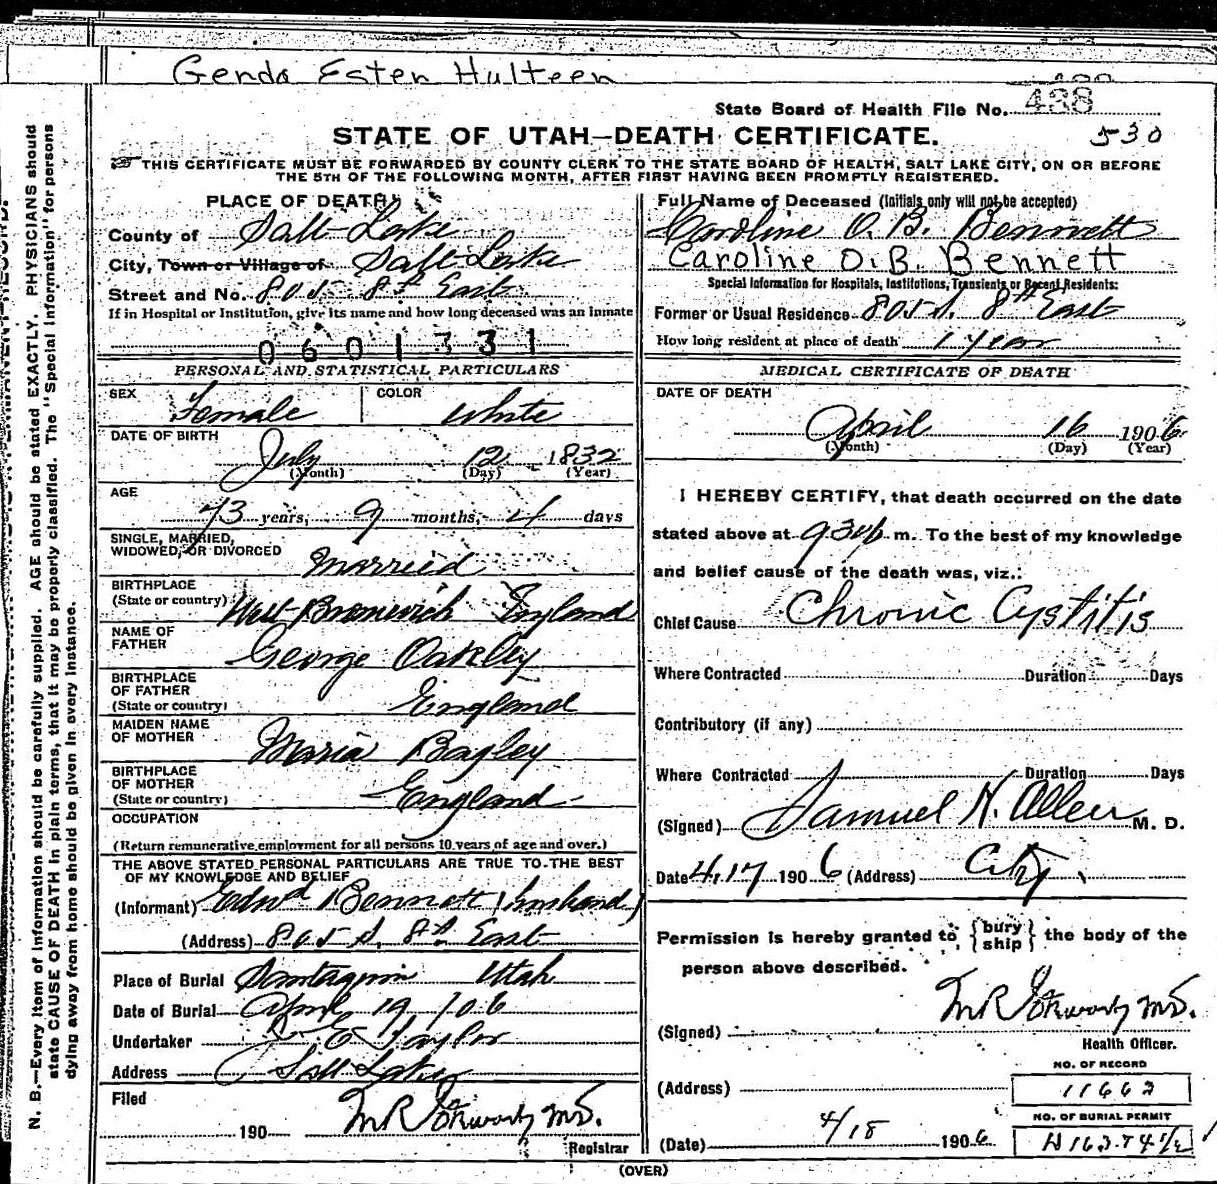 Genda Ester Hulteen
State Board of Health File No. 438
STATE OF UTAH—DEATH CERTIFICATE.
530
THIS CERTIFICATE MUST BE FORWARDED BY COUNTY CLERK TO THE STATE BOARD OF HEALTH, SALT LAKE CITY, ON OR BEFORE
THE 5TH OF THE FOLLOWING MONTH, AFTER FIRST HAVING BEEN PROMPTLY REGISTERED.
PLACE OF DEATH
County of Salt Lake
City, Town or Village of Salt Lake
Street and No. 805 8th East
If in Hospital or Institution, give its name and how long deceased was an inmate
0601331
PERSONAL AND STATISTICAL PARTICULARS
SEX Female COLOR White
DATE OF BIRTH
July 12 1832
(Month) (Day) (Year)
AGE
73 years, 9 months, 4 days
SINGLE, MARRIED,
WIDOWED, OR DIVORCED Married
BIRTHPLACE
(State or country) West Bromwich England
NAME OF
FATHER George Oakley
BIRTHPLACE
OF FATHER
(State or country) England
MAIDEN NAME
OF MOTHER Maria Bagley
BIRTHPLACE
OF MOTHER
(State or country) England
OCCUPATION
(Return remunerative employment for all persons 10 years of age and over.)
THE ABOVE STATED PERSONAL PARTICULARS ARE TRUE TO THE BEST
OF MY KNOWLEDGE AND BELIEF
(Informant) Edwd Bennett (husband)
(Address) 805 S. 8th East
Place of Burial Santaquin Utah
Date of Burial April 19 1906
Undertaker E Taylor
Address Salt Lake
Filed
190 M.D.
Registrar
Full Name of Deceased (Initials only will not be accepted)
Caroline O. B. Bennett
Caroline O.B. Bennett
Special Information for Hospitals, Institutions, Transients or Recent Residents:
Former or Usual Residence 805 S. 8th East
How long resident at place of death 1 year
MEDICAL CERTIFICATE OF DEATH
DATE OF DEATH
April 16 1906
(Month) (Day) (Year)
I HEREBY CERTIFY, that death occurred on the date
stated above at m. To the best of my knowledge
and belief cause of the death was, viz.:
Chief Cause Chronic Cystitis
Where Contracted Duration Days
Contributory (if any)
Where Contracted Duration Days
(Signed) Samuel H. Allen M. D.
Date 4.17 1906 (Address) City.
Permission is hereby granted to {bury ship} the body of the
person above described.
(Signed) M.D.
Health Officer.
NO. OF RECORD
(Address) 11662
NO. OF BURIAL PERMIT
(Date) 4/18 1906
(OVER)
N. B.—Every item of information should be carefully supplied. AGE should be stated EXACTLY. PHYSICIANS should
state CAUSE OF DEATH in plain terms, that it may be properly classified. The "Special Information" for persons
dying away from home should be given in every instance.